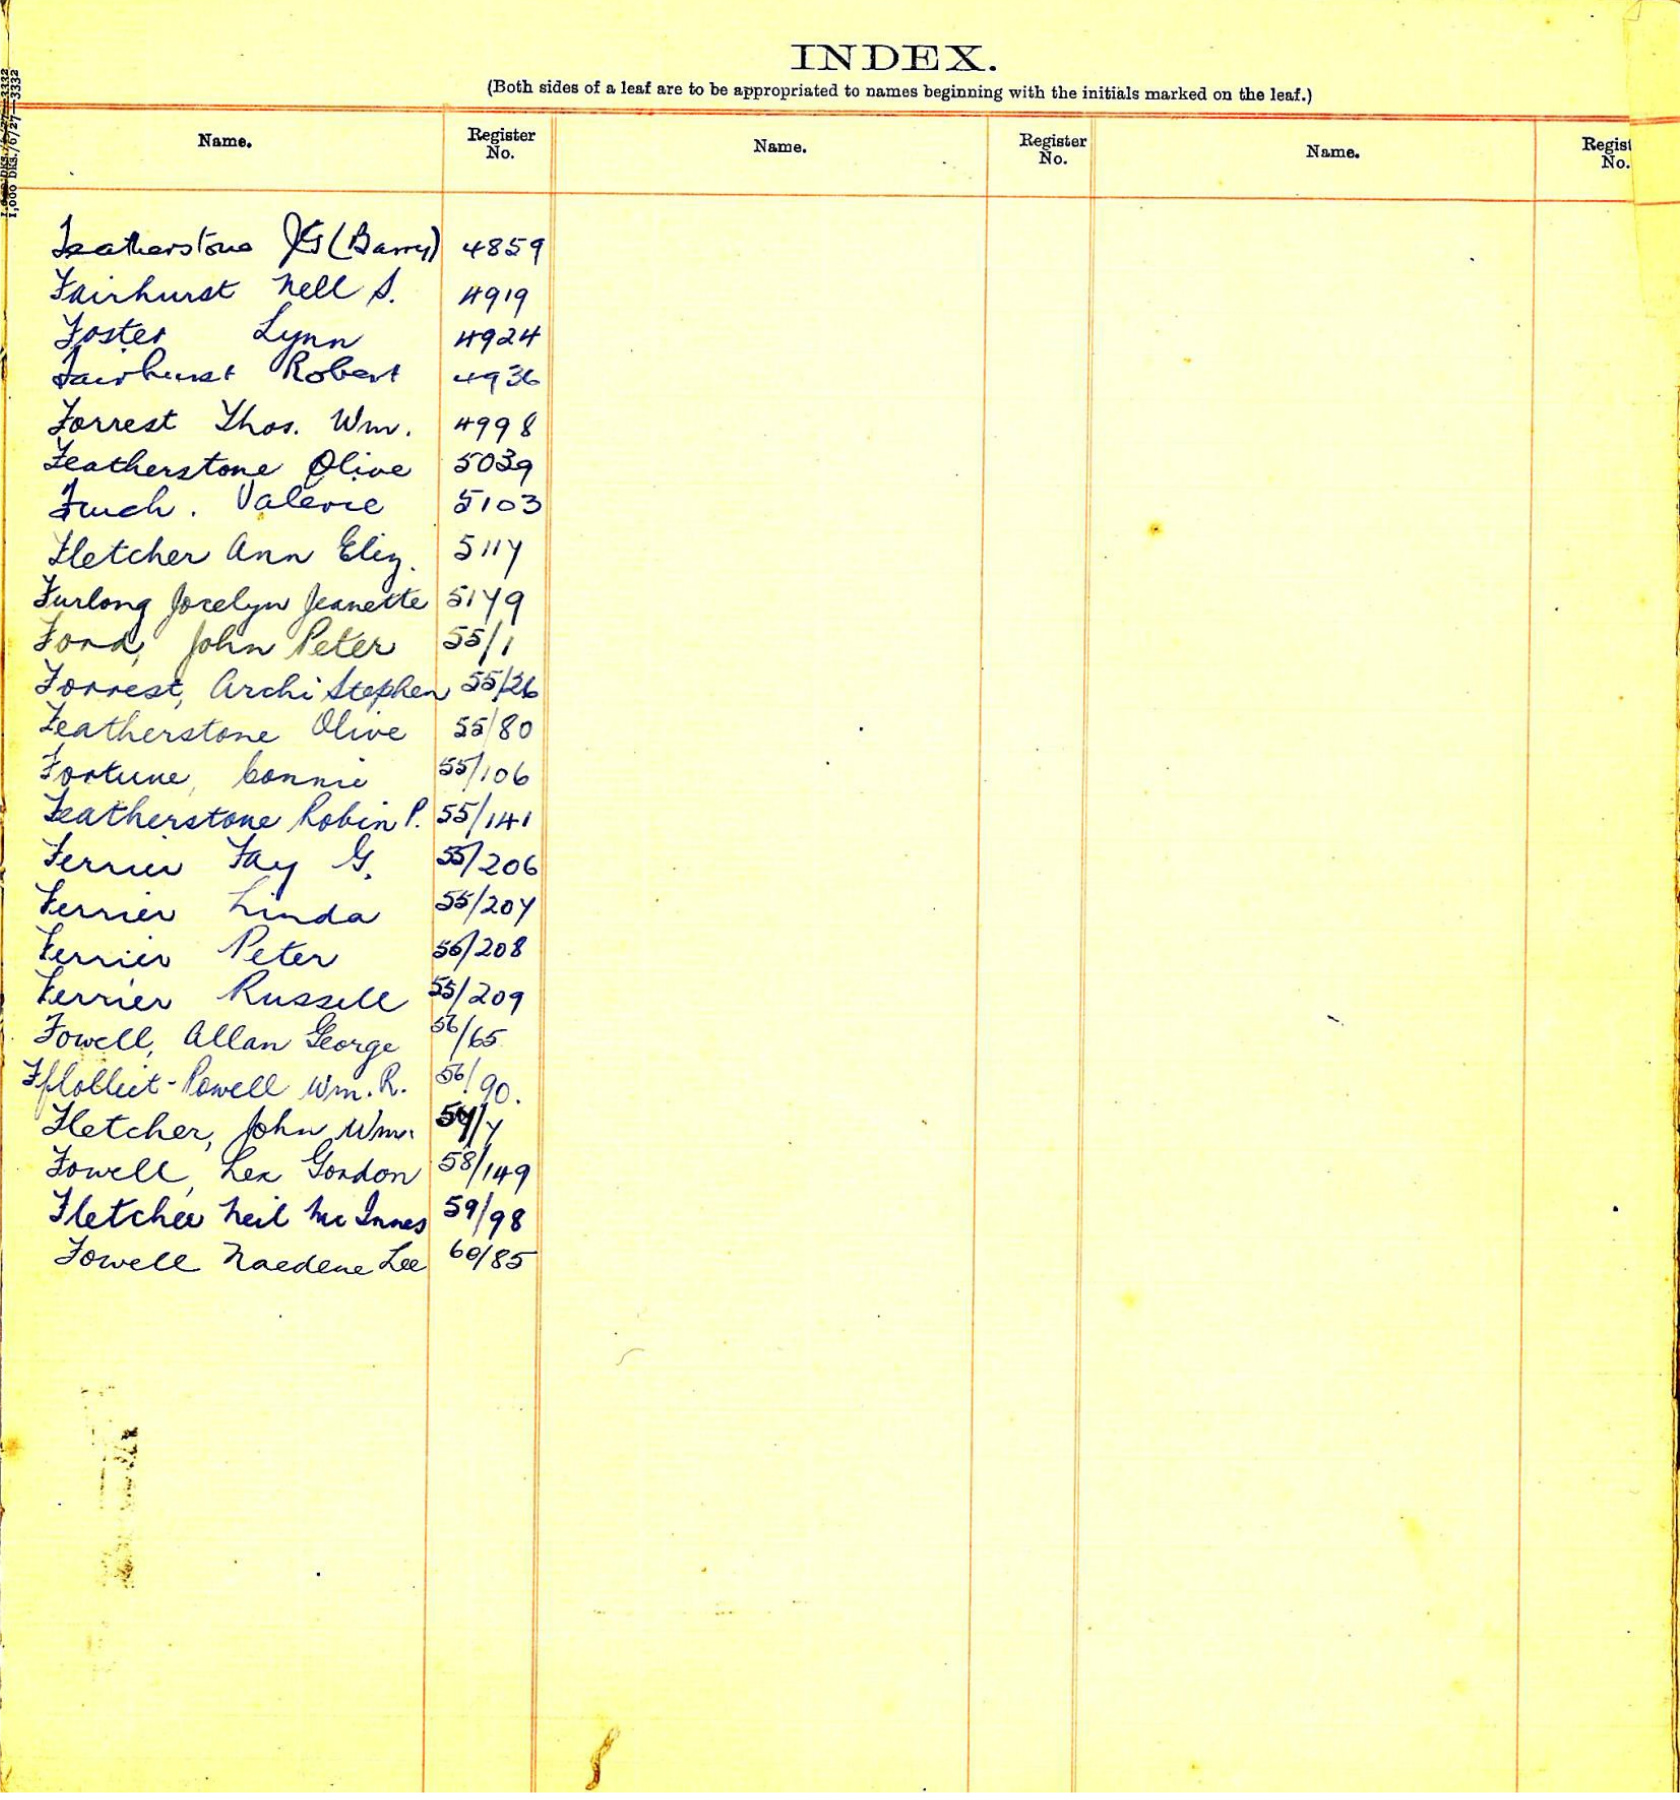 INDEX.
(Both sides of a leaf are to be appropriated to names beginning with the initials marked on the leaf.)
1,000 bks./6/27—3332
Name. Register No. Name. Register No. Name. Regist No.
Featherstone JG (Barry) 4859
Fairhurst Nell S. 4919
Foster Lynn 4924
Fairhurst Robert 4936
Forrest Thos. Wm. 4998
Featherstone Olive 5039
Finch. Valerie 5103
Fletcher Ann Eliz. 5117
Furlong Jocelyn Jeanette 5179
Ford, John Peter 55/1
Forrest, Archi Stephen 55/26
Featherstone Olive 55/80
Fortune, Connie 55/106
Featherstone Robin P. 55/141
Ferrier Fay G. 55/206
Ferrier Linda 55/207
Ferrier Peter 55/208
Ferrier Russell 55/209
Fowell, Allan George 56/65
Powell Wm. R. 56/90.
Fletcher, John Wm. 57/7
Fowell, Lex Gordon 58/149
Fletcher Neil McInnes 59/98
Fowell Naedene Lee 60/85